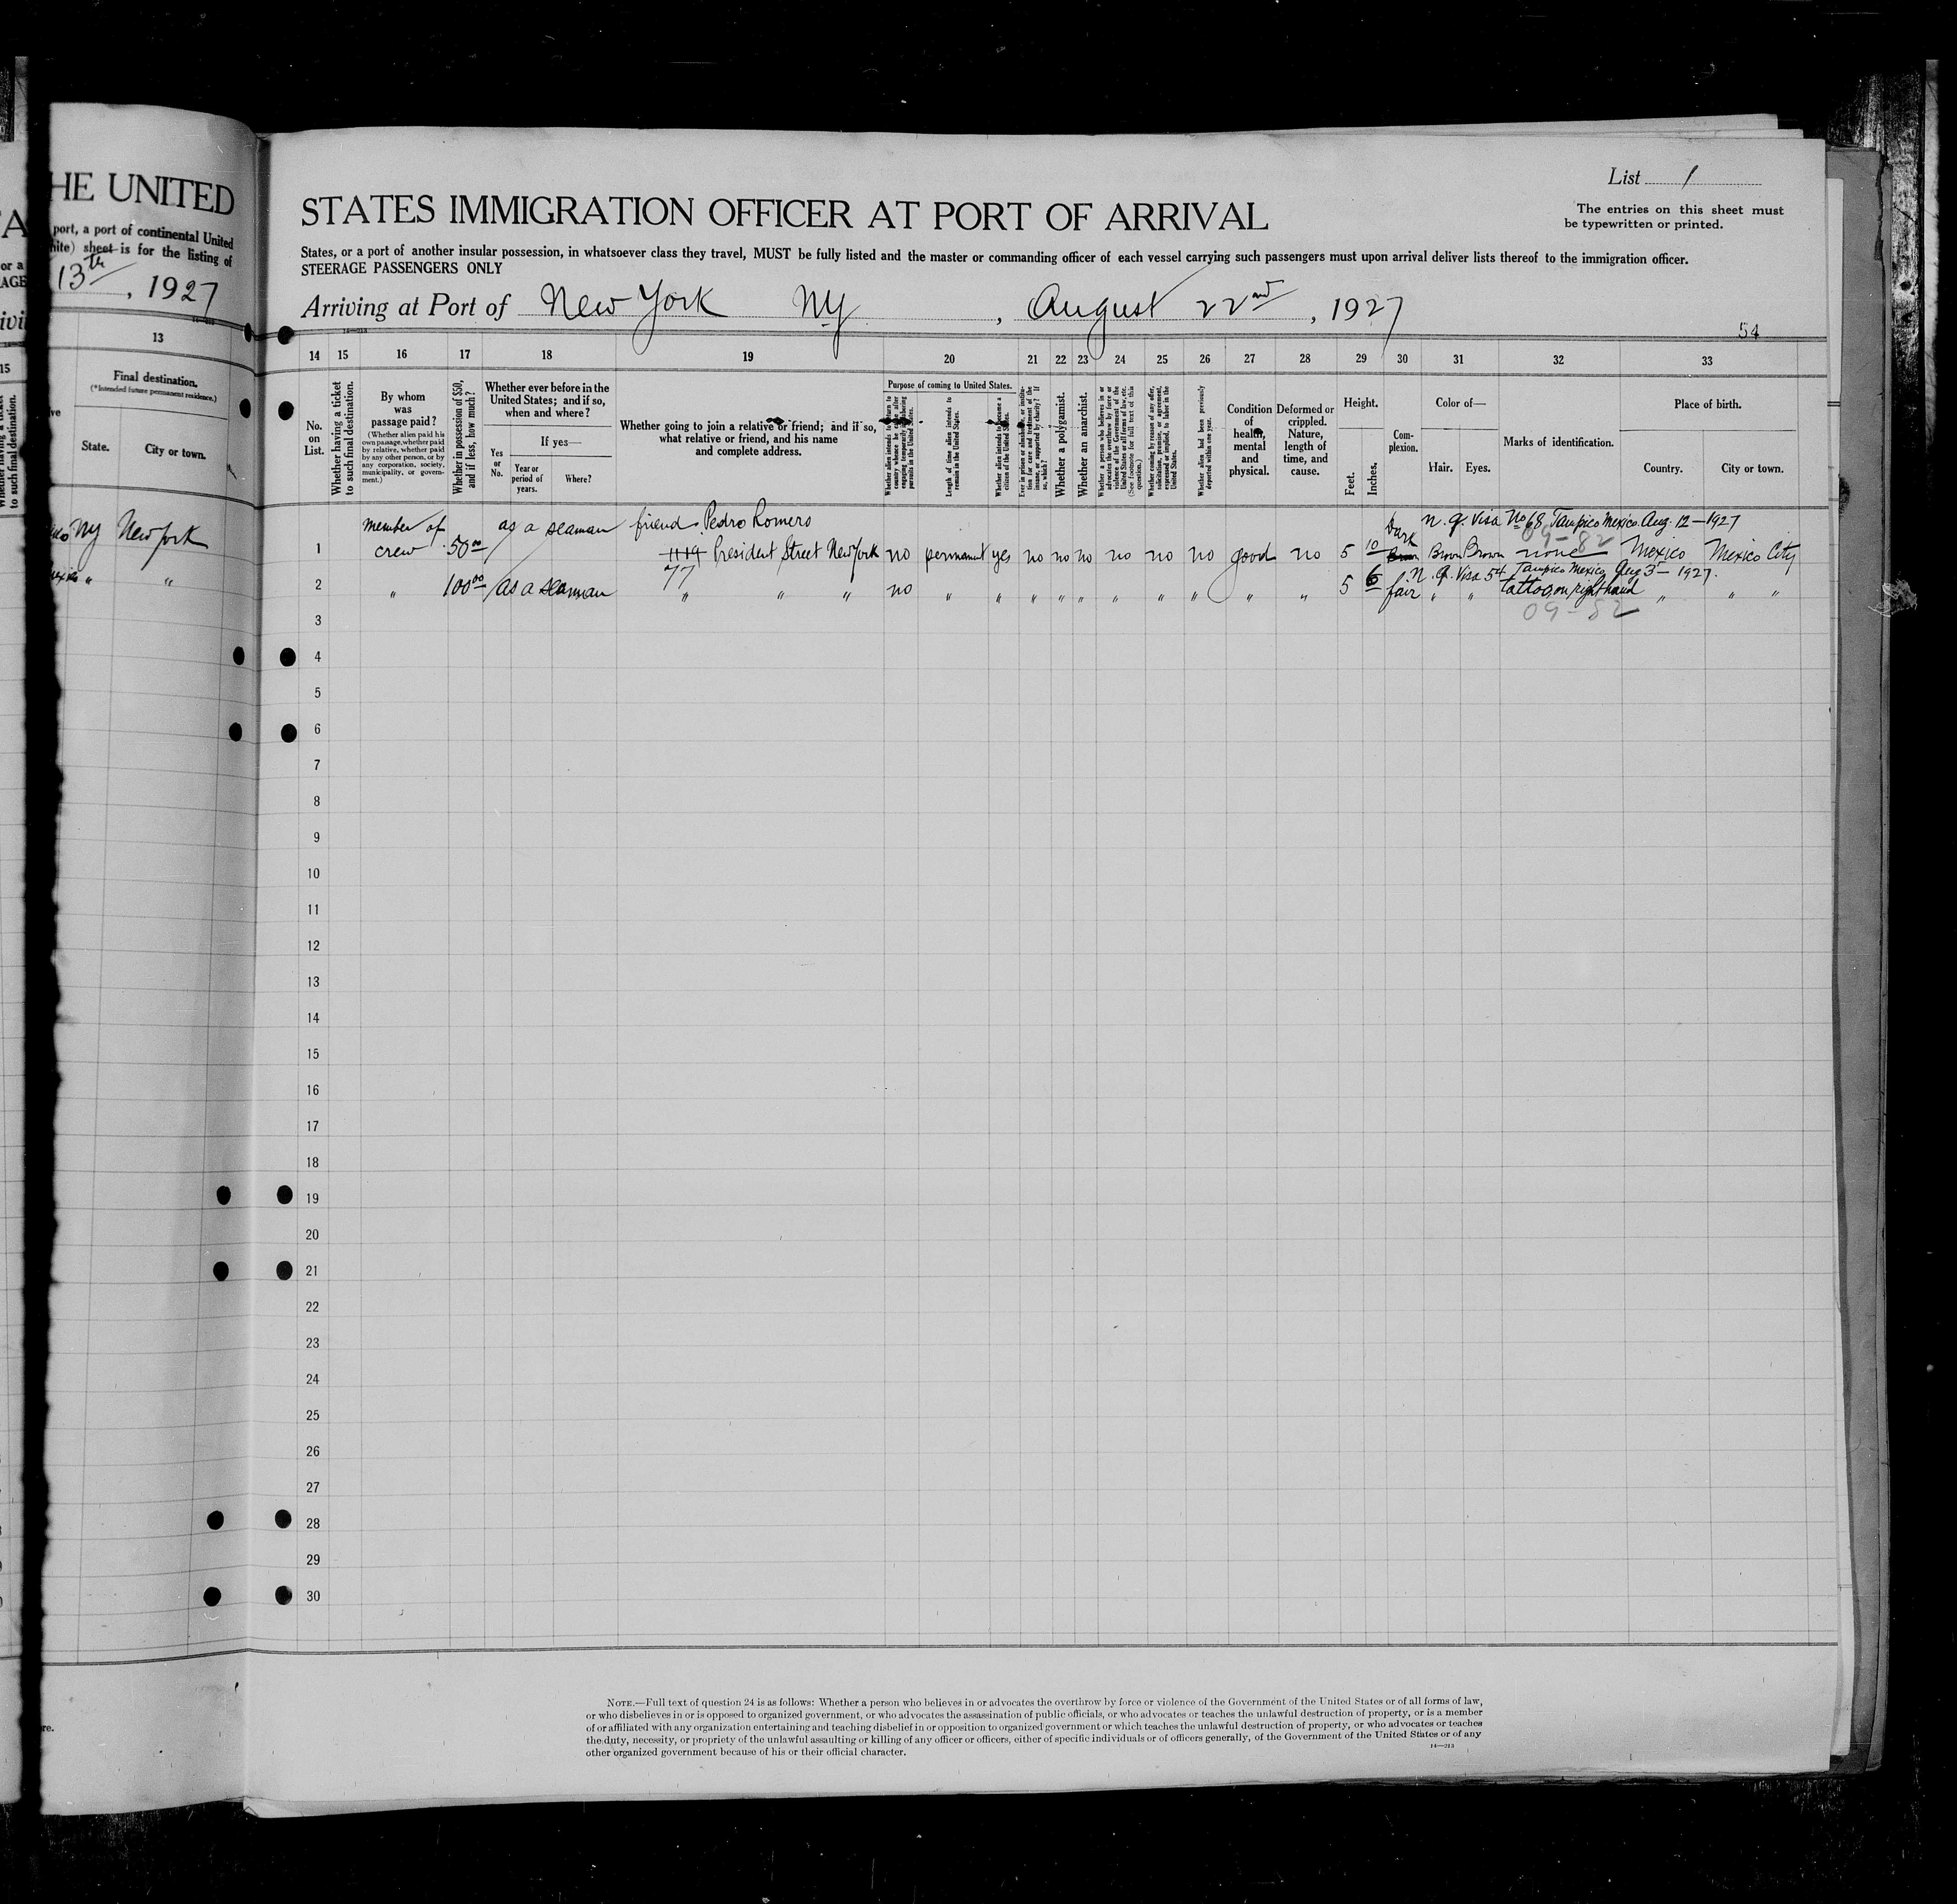 HE UNITED
port, a port of continental United
hite) sheet is for the listing of
13th, 1927
13
Final destination.
(*Intended future permanent residence.)
State. City or town.
NY New York
" "
List 1
STATES IMMIGRATION OFFICER AT PORT OF ARRIVAL
The entries on this sheet must
be typewritten or printed.
States, or a port of another insular possession, in whatsoever class they travel, MUST be fully listed and the master or commanding officer of each vessel carrying such passengers must upon arrival deliver lists thereof to the immigration officer.
STEERAGE PASSENGERS ONLY
Arriving at Port of New York NY, August 22nd, 1927
14—213
54
14 15 16 17 18 19 20 21 22 23 24 25 26 27 28 29 30 31 32 33
No. on List.
Whether having a ticket to such final destination.
By whom was passage paid?
(Whether alien paid his own passage, whether paid by relative, whether paid by any other person, or by any corporation, society, municipality, or government.)
Whether in possession of $50, and if less, how much?
Whether ever before in the United States; and if so, when and where?
Yes or No.
If yes—
Year or period of years.
Where?
Whether going to join a relative or friend; and if so, what relative or friend, and his name and complete address.
Purpose of coming to United States.
Length of time alien intends to remain in the United States.
Whether a polygamist.
Whether an anarchist.
Whether alien had been previously deported within one year.
Condition of health, mental and physical.
Deformed or crippled. Nature, length of time, and cause.
Height.
Feet. Inches.
Complexion.
Color of—
Hair. Eyes.
Marks of identification.
Place of birth.
Country. City or town.
member of as a seaman friend: Pedro Romero Dark n.q. Visa No 68 Tampico Mexico Aug. 12—1927
1 crew 50 00 1119 President Street New York no permanent yes no no no no no no good no 5 10 Brown Brown none Mexico Mexico City
77 n.q. Visa 54 Tampico Mexico Aug 3 - 1927.
2 " 100 00 as a seaman " " " no " " " " " " " " " " 5 6 fair " " tattoo on right hand " " "
09-82
3
4
5
6
7
8
9
10
11
12
13
14
15
16
17
18
19
20
21
22
23
24
25
26
27
28
29
30
NOTE.—Full text of question 24 is as follows: Whether a person who believes in or advocates the overthrow by force or violence of the Government of the United States or of all forms of law,
or who disbelieves in or is opposed to organized government, or who advocates the assassination of public officials, or who advocates or teaches the unlawful destruction of property, or is a member
of or affiliated with any organization entertaining and teaching disbelief in or opposition to organized government or which teaches the unlawful destruction of property, or who advocates or teaches
the duty, necessity, or propriety of the unlawful assaulting or killing of any officer or officers, either of specific individuals or of officers generally, of the Government of the United States or of any
other organized government because of his or their official character.
14—213